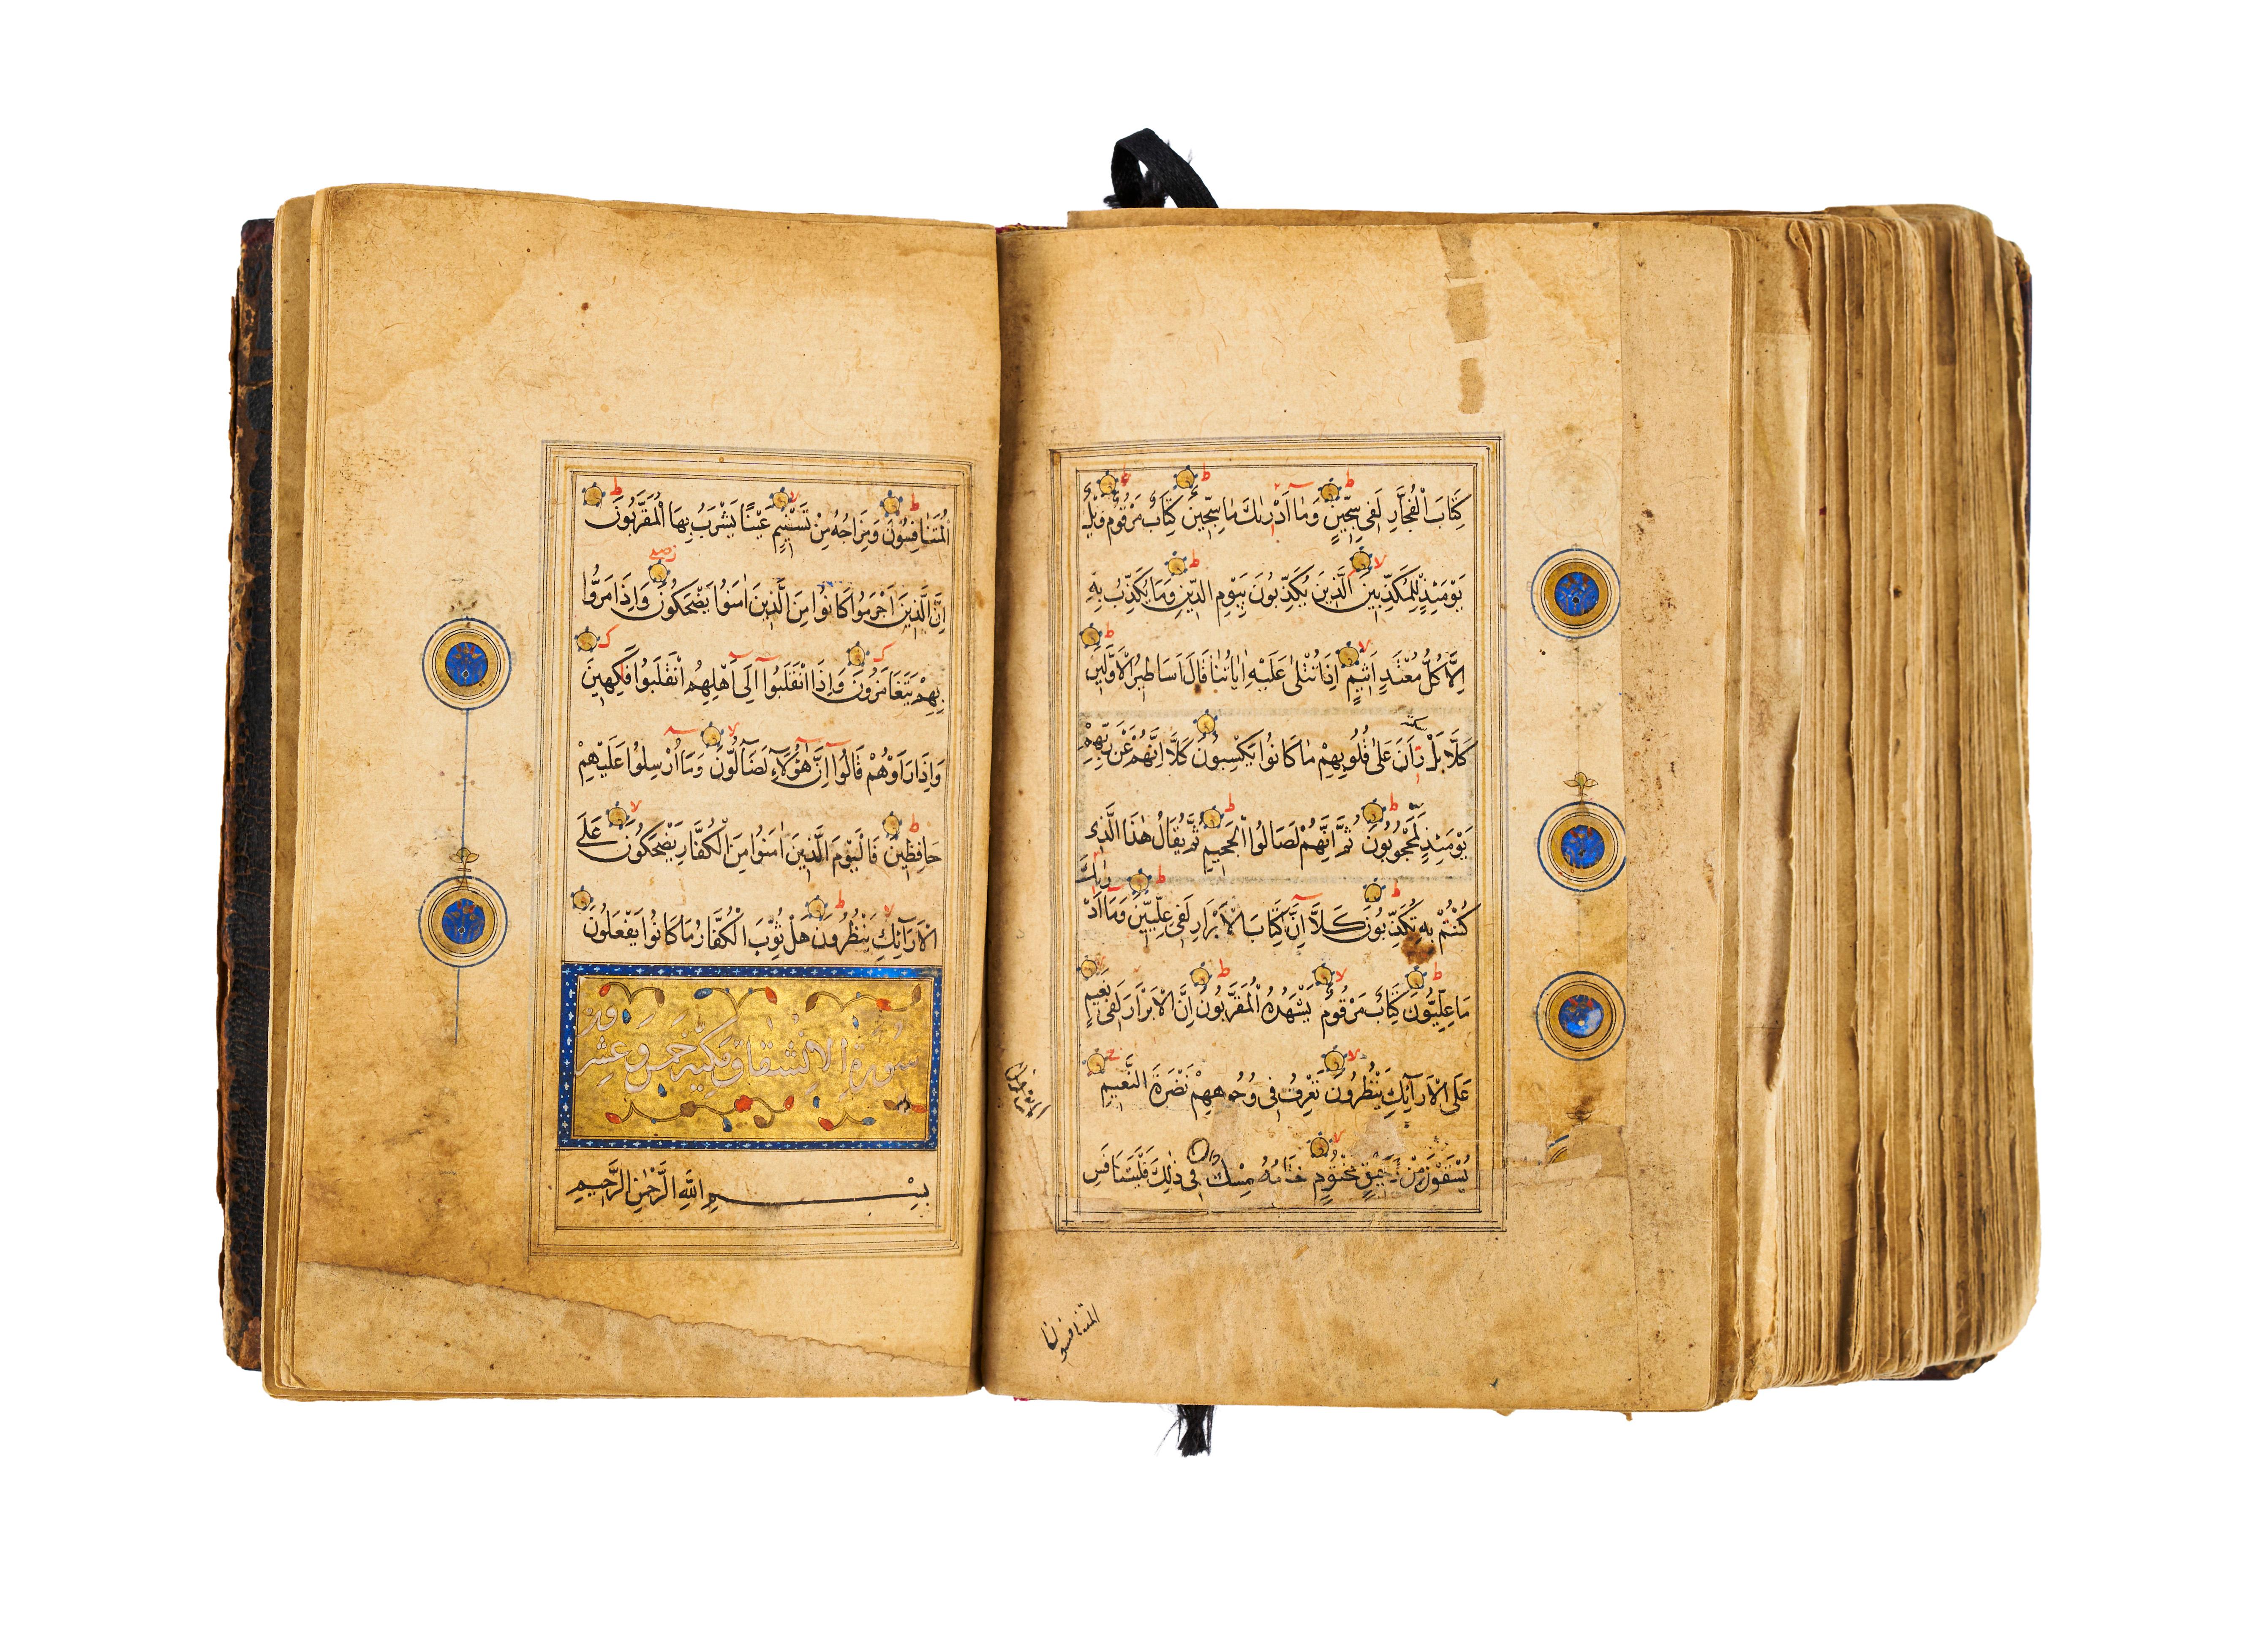 كِتَابَ الْفُجَّارِ لَفِي سِجِّينٍ وَمَا اَدْرٰىكَ مَا سِجِّينٌ كِتَابٌ مَرْقُومٌ وَيْلٌ
يَوْمَئِذٍ لِلْمُكَذِّبِينَ الَّذِينَ يُكَذِّبُونَ بِيَوْمِ الدِّينِ وَمَا يُكَذِّبُ بِهٖ
اِلَّا كُلُّ مُعْتَدٍ اَثِيمٍ اِذَا تُتْلٰى عَلَيْهِ اٰيَاتُنَا قَالَ اَسَاطِيرُ الْاَوَّلِينَ
كَلَّا بَلْ رَانَ عَلٰى قُلُوبِهِمْ مَا كَانُوا يَكْسِبُونَ كَلَّا اِنَّهُمْ عَنْ رَبِّهِمْ
يَوْمَئِذٍ لَمَحْجُوبُونَ ثُمَّ اِنَّهُمْ لَصَالُوا الْجَحِيمِ ثُمَّ يُقَالُ هٰذَا الَّذِى
كُنْتُمْ بِهٖ تُكَذِّبُونَ كَلَّا اِنَّ كِتَابَ الْاَبْرَارِ لَفِي عِلِّيِّينَ وَمَا اَدْرٰىكَ
مَا عِلِّيُّونَ كِتَابٌ مَرْقُومٌ يَشْهَدُهُ الْمُقَرَّبُونَ اِنَّ الْاَبْرَارَ لَفِي نَعِيمٍ
عَلَى الْاَرَآئِكِ يَنْظُرُونَ تَعْرِفُ فِي وُجُوهِهِمْ نَضْرَةَ النَّعِيمِ
يُسْقَوْنَ مِنْ رَحِيقٍ مَخْتُومٍ خِتَامُهُ مِسْكٌ وَفِي ذٰلِكَ فَلْيَتَنَافَسِ
المتنافسون
الْمُتَنَافِسُونَ وَمِزَاجُهُ مِنْ تَسْنِيمٍ عَيْنًا يَشْرَبُ بِهَا الْمُقَرَّبُونَ
اِنَّ الَّذِينَ اَجْرَمُوا كَانُوا مِنَ الَّذِينَ اٰمَنُوا يَضْحَكُونَ وَاِذَا مَرُّوا
بِهِمْ يَتَغَامَزُونَ وَاِذَا انْقَلَبُوا اِلٰٓى اَهْلِهِمُ انْقَلَبُوا فَكِهِينَ
وَاِذَا رَاَوْهُمْ قَالُوا اِنَّ هٰٓؤُلَآءِ لَضَآلُّونَ وَمَا اُرْسِلُوا عَلَيْهِمْ
حَافِظِينَ فَالْيَوْمَ الَّذِينَ اٰمَنُوا مِنَ الْكُفَّارِ يَضْحَكُونَ عَلَى
الْاَرَآئِكِ يَنْظُرُونَ هَلْ ثُوِّبَ الْكُفَّارُ مَا كَانُوا يَفْعَلُونَ
سُورَةُ الْاِنْشِقَاقِ مَكِّيَّة خَمْس وَعِشْرُونَ
بِسْمِ اللّٰهِ الرَّحْمٰنِ الرَّحِيمِ